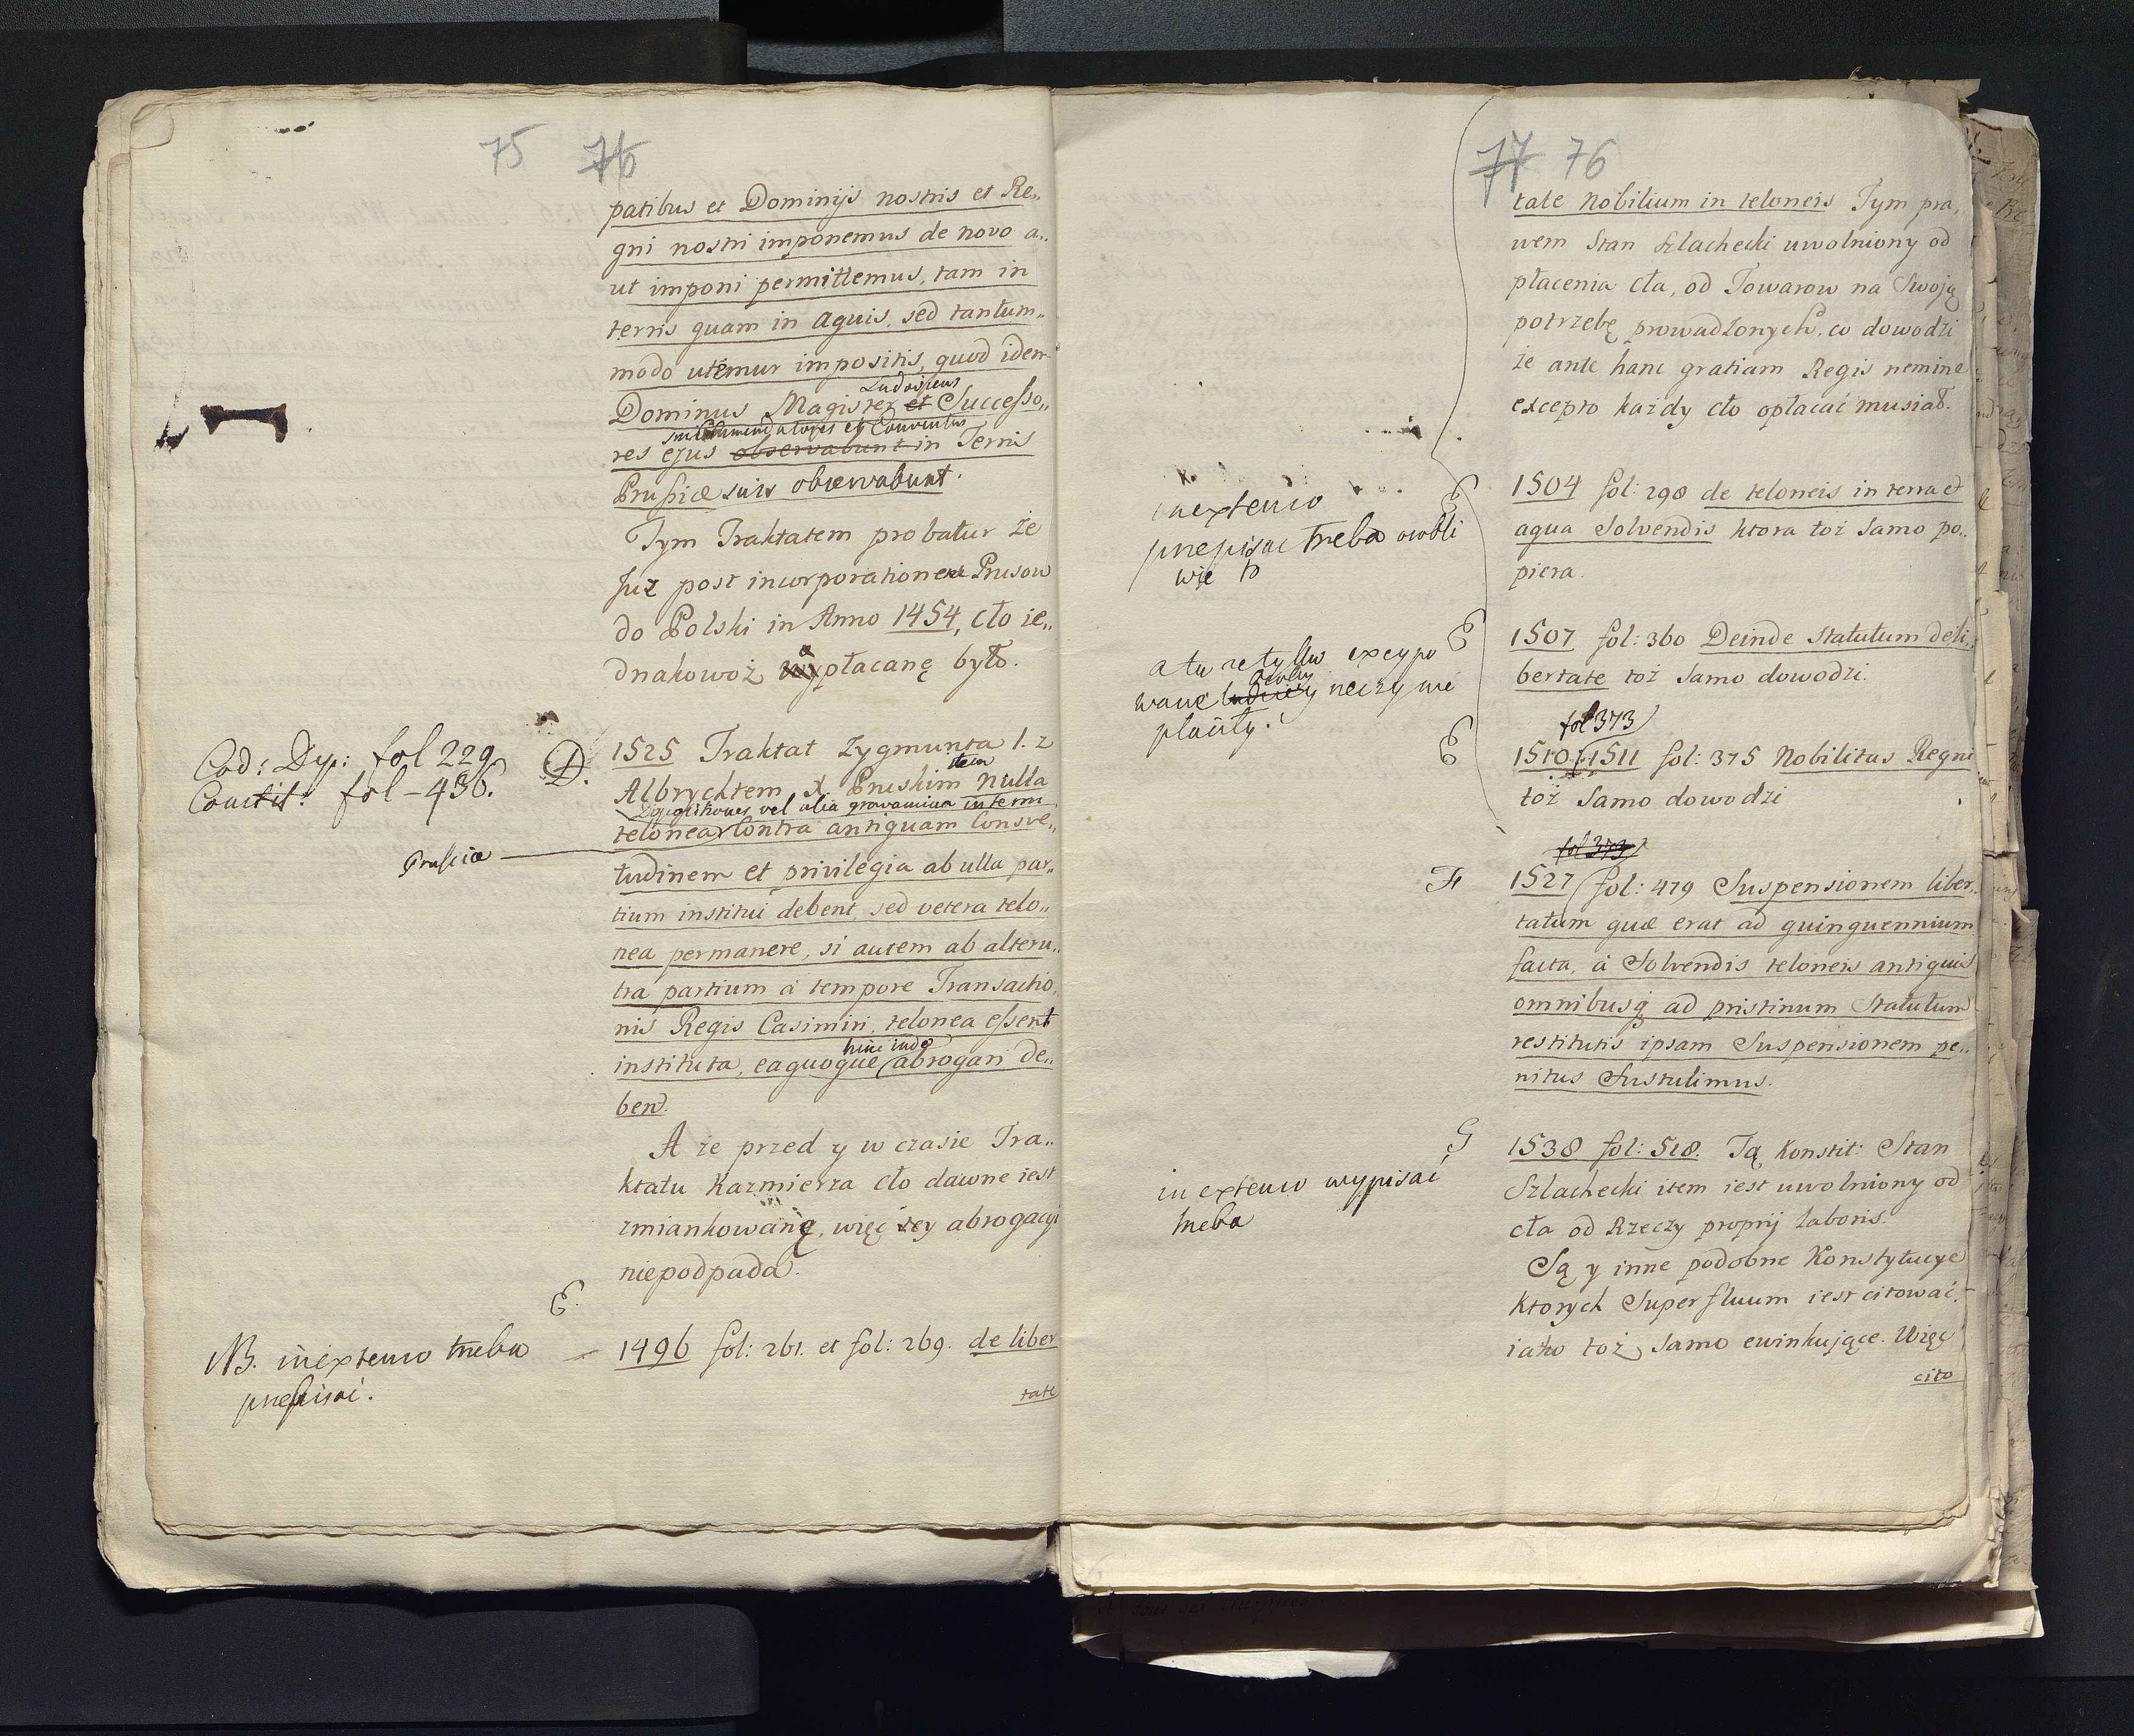 75 76
patibus et Dominijs nostris et Re,,
gni nostri imponemus de novo a,,
ut imponi permittemus, tam in
terris quam in aquis, sed tantum,,
modo utemur impositis, quod idem
Ludovicus
Dominus Magister et Successo,,
sui Commendatores et Conventus
res ejus observabunt in Terris
Prussiæ suis observabunt.
Tym Traktatem probatur że
Już post incorporationem Prusow
do Polski in Anno 1454, cło ie,,
dnakowoż opłacanę było.
Cod: Dyp: fol 229
Constit: fol - 436.
D.
1525 Traktat Zygmunta 1. z
item
Albrychtem X. Pruskim nulla
vel alia gravamina in terris
Prussiæ
telonea contra antiquam Consve,,
tudinem et privilegia ab ulla par,,
tium institui debent, sed vetera telo,,
nea permanere, si autem ab alteru,,
tra partium a tempore Transactio,
nis Regis Casimiri, telonea essent
hinc inde
instituta, ea quoque abrogari de,,
bent.
A że przed y w czasie Tra,,
ktatu Kazmierza cło dawne iest
zmiankowanę, więc tey abrogacyi
niepodpada.
E.
NB. in extenso trzeba
przepisać.
1496 fol: 261. et fol: 269. de liber
tate
77 76
tate Nobilium in teloneis Tym pra,,
wem Stan Szlachecki uwolniony od
płacenia cła, od Towarow na Swoją
potrzebę prowadzonych, co dowodzi
że ante hanc gratiam Regis nemine
excepto każdy cło opłacać musiał.
in extenso
przepisac trzeba osobli
wie to
E
1504 fol: 298 de teloneis in terra et
aqua Solvendis ktora toż Samo po,,
piera.
a tu ze tylko excypo
wane rzeczy nie
płaciły.
E
1507 fol: 360 Deinde Statutum de li,,
bertate toż Samo dowodzi.
fol 373
E
1510. 1511 fol: 375 Nobilitas Regni
toż Samo dowodzi
fol 373
F
1527 fol: 479 Suspensionem liber,,
tatum quæ erat ad quinquennium
facta, a Solvendis teloneis antiquis
omnibusq ad pristinum Statutum
restitutis ipsam Suspensionem pe,,
nitus Sustulimus.
G
in extenso wypisać
trzeba
1538 fol: 518. Tą Konstit: Stan
Szlachecki item iest uwolniony od
cła od Rzeczy proprij laboris.
Są y inne podobne Konstytucye
ktorych Superfluum iest citować,
iako toż Samo ewinkuiące. Więc
cito